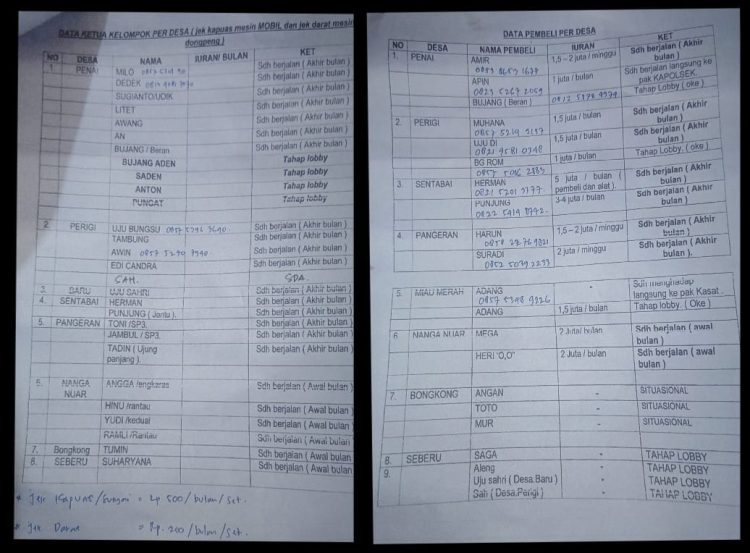 DATA KETUA KELOMPOK PER DESA ( jek kapuas mesin MOBIL dan jek darat mesin
dongpeng )
NO DESA NAMA IURAN/ BULAN KET
1. PENAI MILO Sdh berjalan ( Akhir bulan )
DEDEK Sdh berjalan ( Akhir bulan )
SUGIANTO/UDIK Sdh berjalan ( Akhir bulan )
LITET Sdh berjalan ( Akhir bulan )
AWANG Sdh berjalan ( Akhir bulan )
AN Sdh berjalan ( Akhir bulan )
BUJANG / Beran Sdh berjalan ( Akhir bulan )
BUJANG ADEN Tahap lobby
SADEN Tahap lobby
ANTON Tahap lobby
PUNGAT Tahap lobby
2. PERIGI UJU BUNGSU Sdh berjalan ( Akhir bulan )
TAMBUNG Sdh berjalan ( Akhir bulan )
AWIN Sdh berjalan ( Akhir bulan )
EDI CANDRA Sdh berjalan ( Akhir bulan )
SAH. SDA.
3. BARU UJU SAHRI Sdh berjalan ( Akhir bulan )
4. SENTABAI HERMAN Sdh berjalan ( Akhir bulan )
PUNJUNG ( Jantu ). Sdh berjalan ( Akhir bulan )
5. PANGERAN TONI /SP3. Sdh berjalan ( Akhir bulan )
JAMBUL / SP3. Sdh berjalan ( Akhir bulan )
TADIN ( Ujung Sdh berjalan ( Akhir bulan )
panjang ).
6. NANGA ANGGA /engkaras Sdh berjalan ( Awal bulan )
NUAR
HINU /rantau Sdh berjalan ( Awal bulan )
YUDI /kedual Sdh berjalan ( Awal bulan )
RAMLI /Rantau Sdh berjalan ( Awal bulan )
7. Bongkong TUMIN Sdh berjalan ( Awal bulan
8. SEBERU SUHARYANA Sdh berjalan ( Awal bulan
* Jek Kapuas /Sungai = Rp 500 /bulan /set.
* Jek Darat = Rp. 200 /bulan /set.
DATA PEMBELI PER DESA
NO DESA NAMA PEMBELI IURAN KET
1. PENAI AMIR 1,5 – 2 juta / minggu Sdh berjalan ( Akhir
bulan )
APIN 1 juta / bulan Sdh berjalan langsung ke
0823 5267 2059 pak KAPOLSEK.
BUJANG ( Beran ) Tahap Lobby ( oke )
2. PERIGI MUHANA 1,5 juta / bulan Sdh berjalan ( Akhir
0857 5219 9157 bulan )
UJU DI 1,5 juta / bulan Sdh berjalan ( Akhir
0821 4581 0748 bulan )
BG ROM 1 juta / bulan Tahap Lobby. ( oke )
3. SENTABAI HERMAN 5 juta / bulan ( Sdh berjalan ( Akhir
pembeli dan alat ). bulan )
PUNJUNG 3-4 juta / bulan Sdh berjalan ( Akhir
bulan )
4. PANGERAN HARUN 1,5 – 2 juta / minggu Sdh berjalan ( Akhir
bulan ).
SURADI 2 juta / minggu Sdh berjalan ( Akhir
0852 5039 2233 bulan ).
5. MIAU MERAH ADANG - Sdh menghadap
0857 5348 9226 langsung ke pak Kasat .
ADANG 1,5 juta / bulan Tahap lobby. ( Oke )
6 NANGA NUAR MEGA 2 Juta/ bulan Sdh berjalan ( awal
bulan )
HERI "O,O" 2 Juta / bulan Sdh berjalan ( awal
bulan )
7. BONGKONG ANGAN - SITUASIONAL
TOTO - SITUASIONAL
MUR - SITUASIONAL
8. SEBERU SAGA - TAHAP LOBBY
9. Aleng - TAHAP LOBBY
Uju sahri ( Desa.Baru ) - TAHAP LOBBY
Sah ( Desa.Perigi ) - TAHAP LOBBY